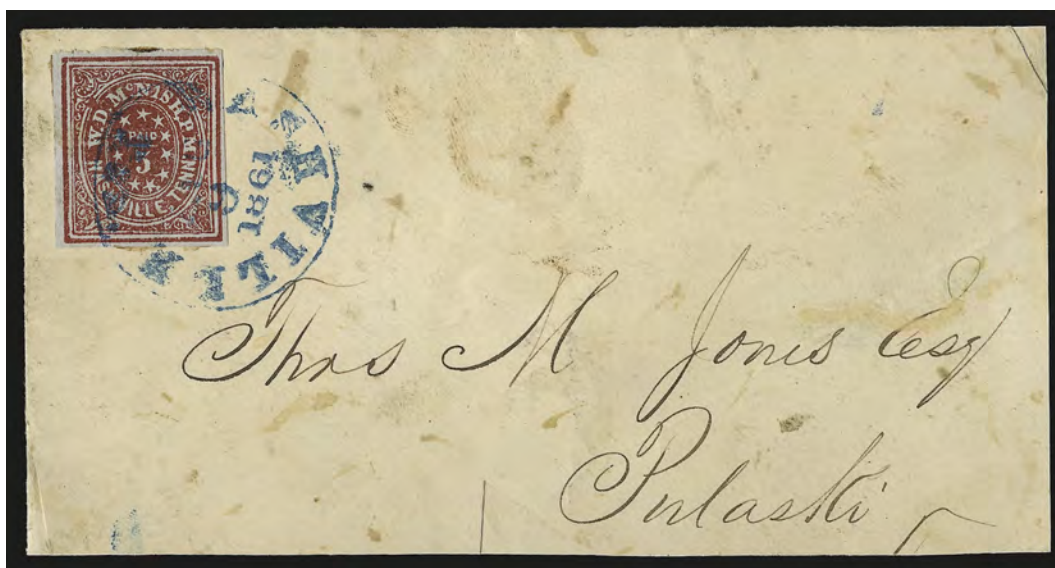 W.D. McNISH. P.M.
PAID
5
NASHVILLE, TENN.
NASHVILLE
1861
Thos M Jones Esq
Pulaski